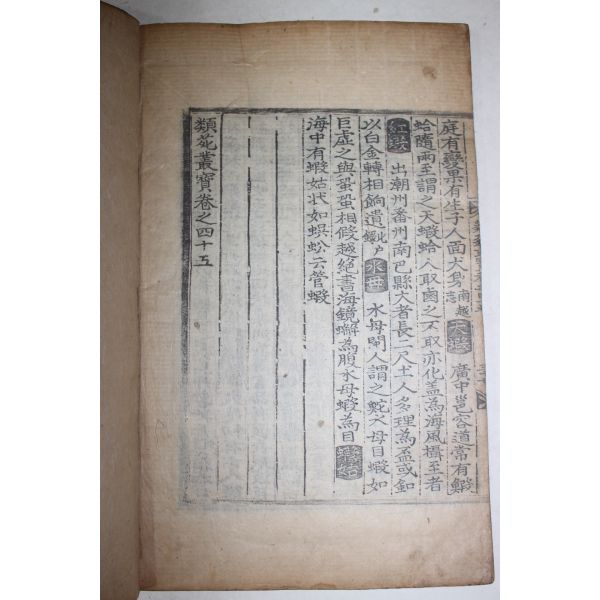 庭有變果有生子人面犬身南越志 天蝦 廣中邕容道常有蝦
蛤隨雨至謂之天蝦蛤人取鹵之不取亦化盖為海風擁至者
紅蝦 出潮州番州南巴縣大者長二尺土人多理為盃或釦
以白金轉相餉遺北户錄 水母 水母閩人謂之䖳水母目蝦如
巨虛之與蛩蛩相假越絕書海鏡蠏為腹水母蝦為目 蝦姑
海中有蝦姑状如蜈蚣云管蝦
類苑叢寶卷之四十五